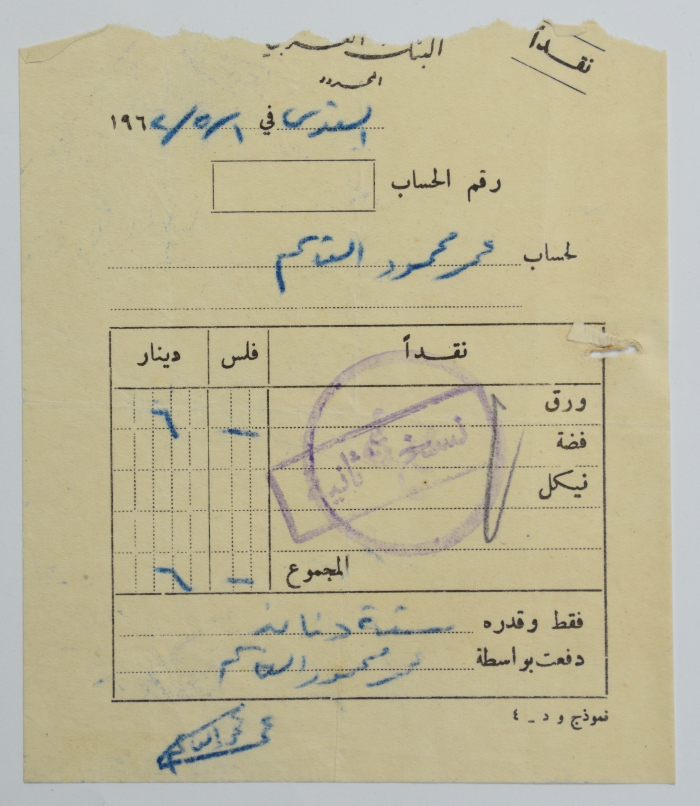 نقداً
البنك العربي
المحدود
القدس في ١/٥/١٩٦٢
رقم الحساب
لحساب عمر محمود القاسم
دينار فلس نقداً
ورق ٦ –
فضة
نيكل
نسخة ثانية
المجموع ٦ –
فقط وقدره ستة دنانير
دفعت بواسطة عمر محمود القاسم
نموذج و د – ٤
عمر محمود القاسم